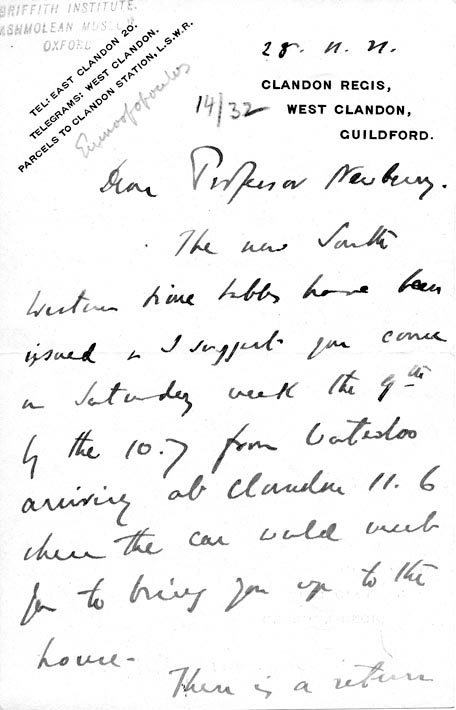 GRIFFITH INSTITUTE.
ASHMOLEAN MUSEUM
OXFORD
TEL: EAST CLANDON 20.
TELEGRAMS: WEST CLANDON.
PARCELS TO CLANDON STATION, L.S.W.R.
Eumorfopoulos
14/32
28. 11. 21.
CLANDON REGIS,
WEST CLANDON,
GUILDFORD.
Dear Professor Newberry.
The new South
Western time tables have been
issued & I suggest you come
on Saturday week the 9th
by the 10.7 from Waterloo
arriving at Clandon 11.6
where the car would meet
you to bring you up to the
house.
There is a return